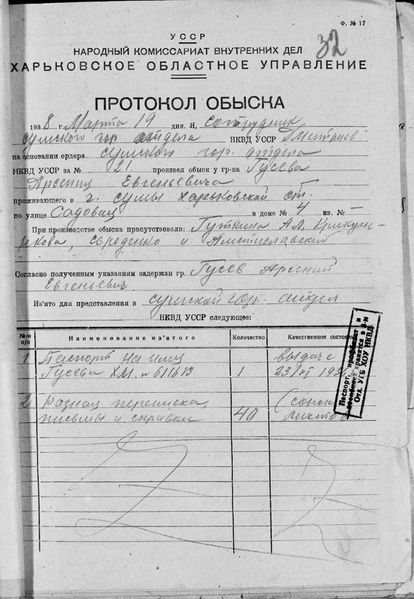 Ф. № 17
32
УССР
НАРОДНЫЙ КОМИССАРИАТ ВНУТРЕННИХ ДЕЛ
ХАРЬКОВСКОЕ ОБЛАСТНОЕ УПРАВЛЕНИЕ
ПРОТОКОЛ ОБЫСКА
1938 г. Марта 19 дня. Я, сотрудник
сумского гор отдела НКВД УССР Дмитриев
на основании ордера сумского гор. отдела
НКВД УССР за № 21 произвел обыск у гр-на Гусева
Арсения Евгеньевича
проживающего в г. Сумы Харьковской об.
по улице Садовая в доме № 4 кв. №
При производстве обыска присутствовали: Гуткина А.М.
и
Согласно полученным указаниям задержан гр. Гусев Арсений
Евгеньевич
Из'ято для представления в сумский гор. отдел
НКВД УССР следующее:
№№ п/п Наименование из'ятого Количество Качественное состояние
1 Паспорт на имя выдача
Гусева № 611613 1
2 Разная переписка,
письмы и справки 40 (сорок
листов
Паспорт,
хранится в
Отд. УГБ ХОУ НКВД